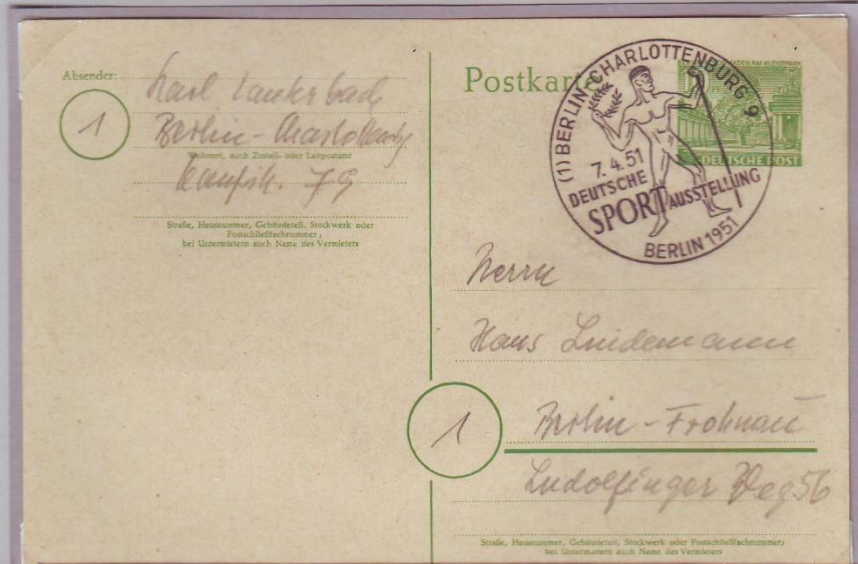 Absender:
Karl Lauterbach
1
Berlin-Charlottenbg
Wohnort, auch Zustell- oder Leitpostamt
79
Straße, Hausnummer, Gebäudeteil, Stockwerk oder
Postschließfachnummer;
bei Untermietern auch Name des Vermieters
Postkarte
(1) BERLIN-CHARLOTTENBURG 9
7.4.51
DEUTSCHE
SPORT AUSSTELLUNG
BERLIN 1951
DEUTSCHE POST
Herrn
Hans Lindemann
1
Berlin-Frohnau
Ludolfinger Weg 56
Straße, Hausnummer, Gebäudeteil, Stockwerk oder Postschließfachnummer;
bei Untermietern auch Name des Vermieters